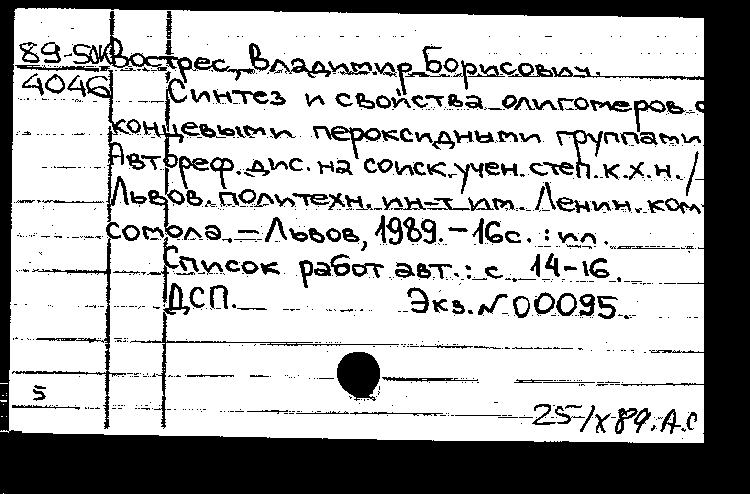 89-50к Вострес, Владимир Борисович.
4046 Синтез и свойства олигомеров с
концевыми пероксидными группами
Автореф. дис. на соиск. учен. степ. к.х.н. /
Львов. политехн. ин-т им. Ленин. ком-
сомола. – Львов, 1989. – 16с. : ил.
Список работ авт.: с. 14-16.
ДСП. Экз. N 00095.
5
25/X 89. А.С